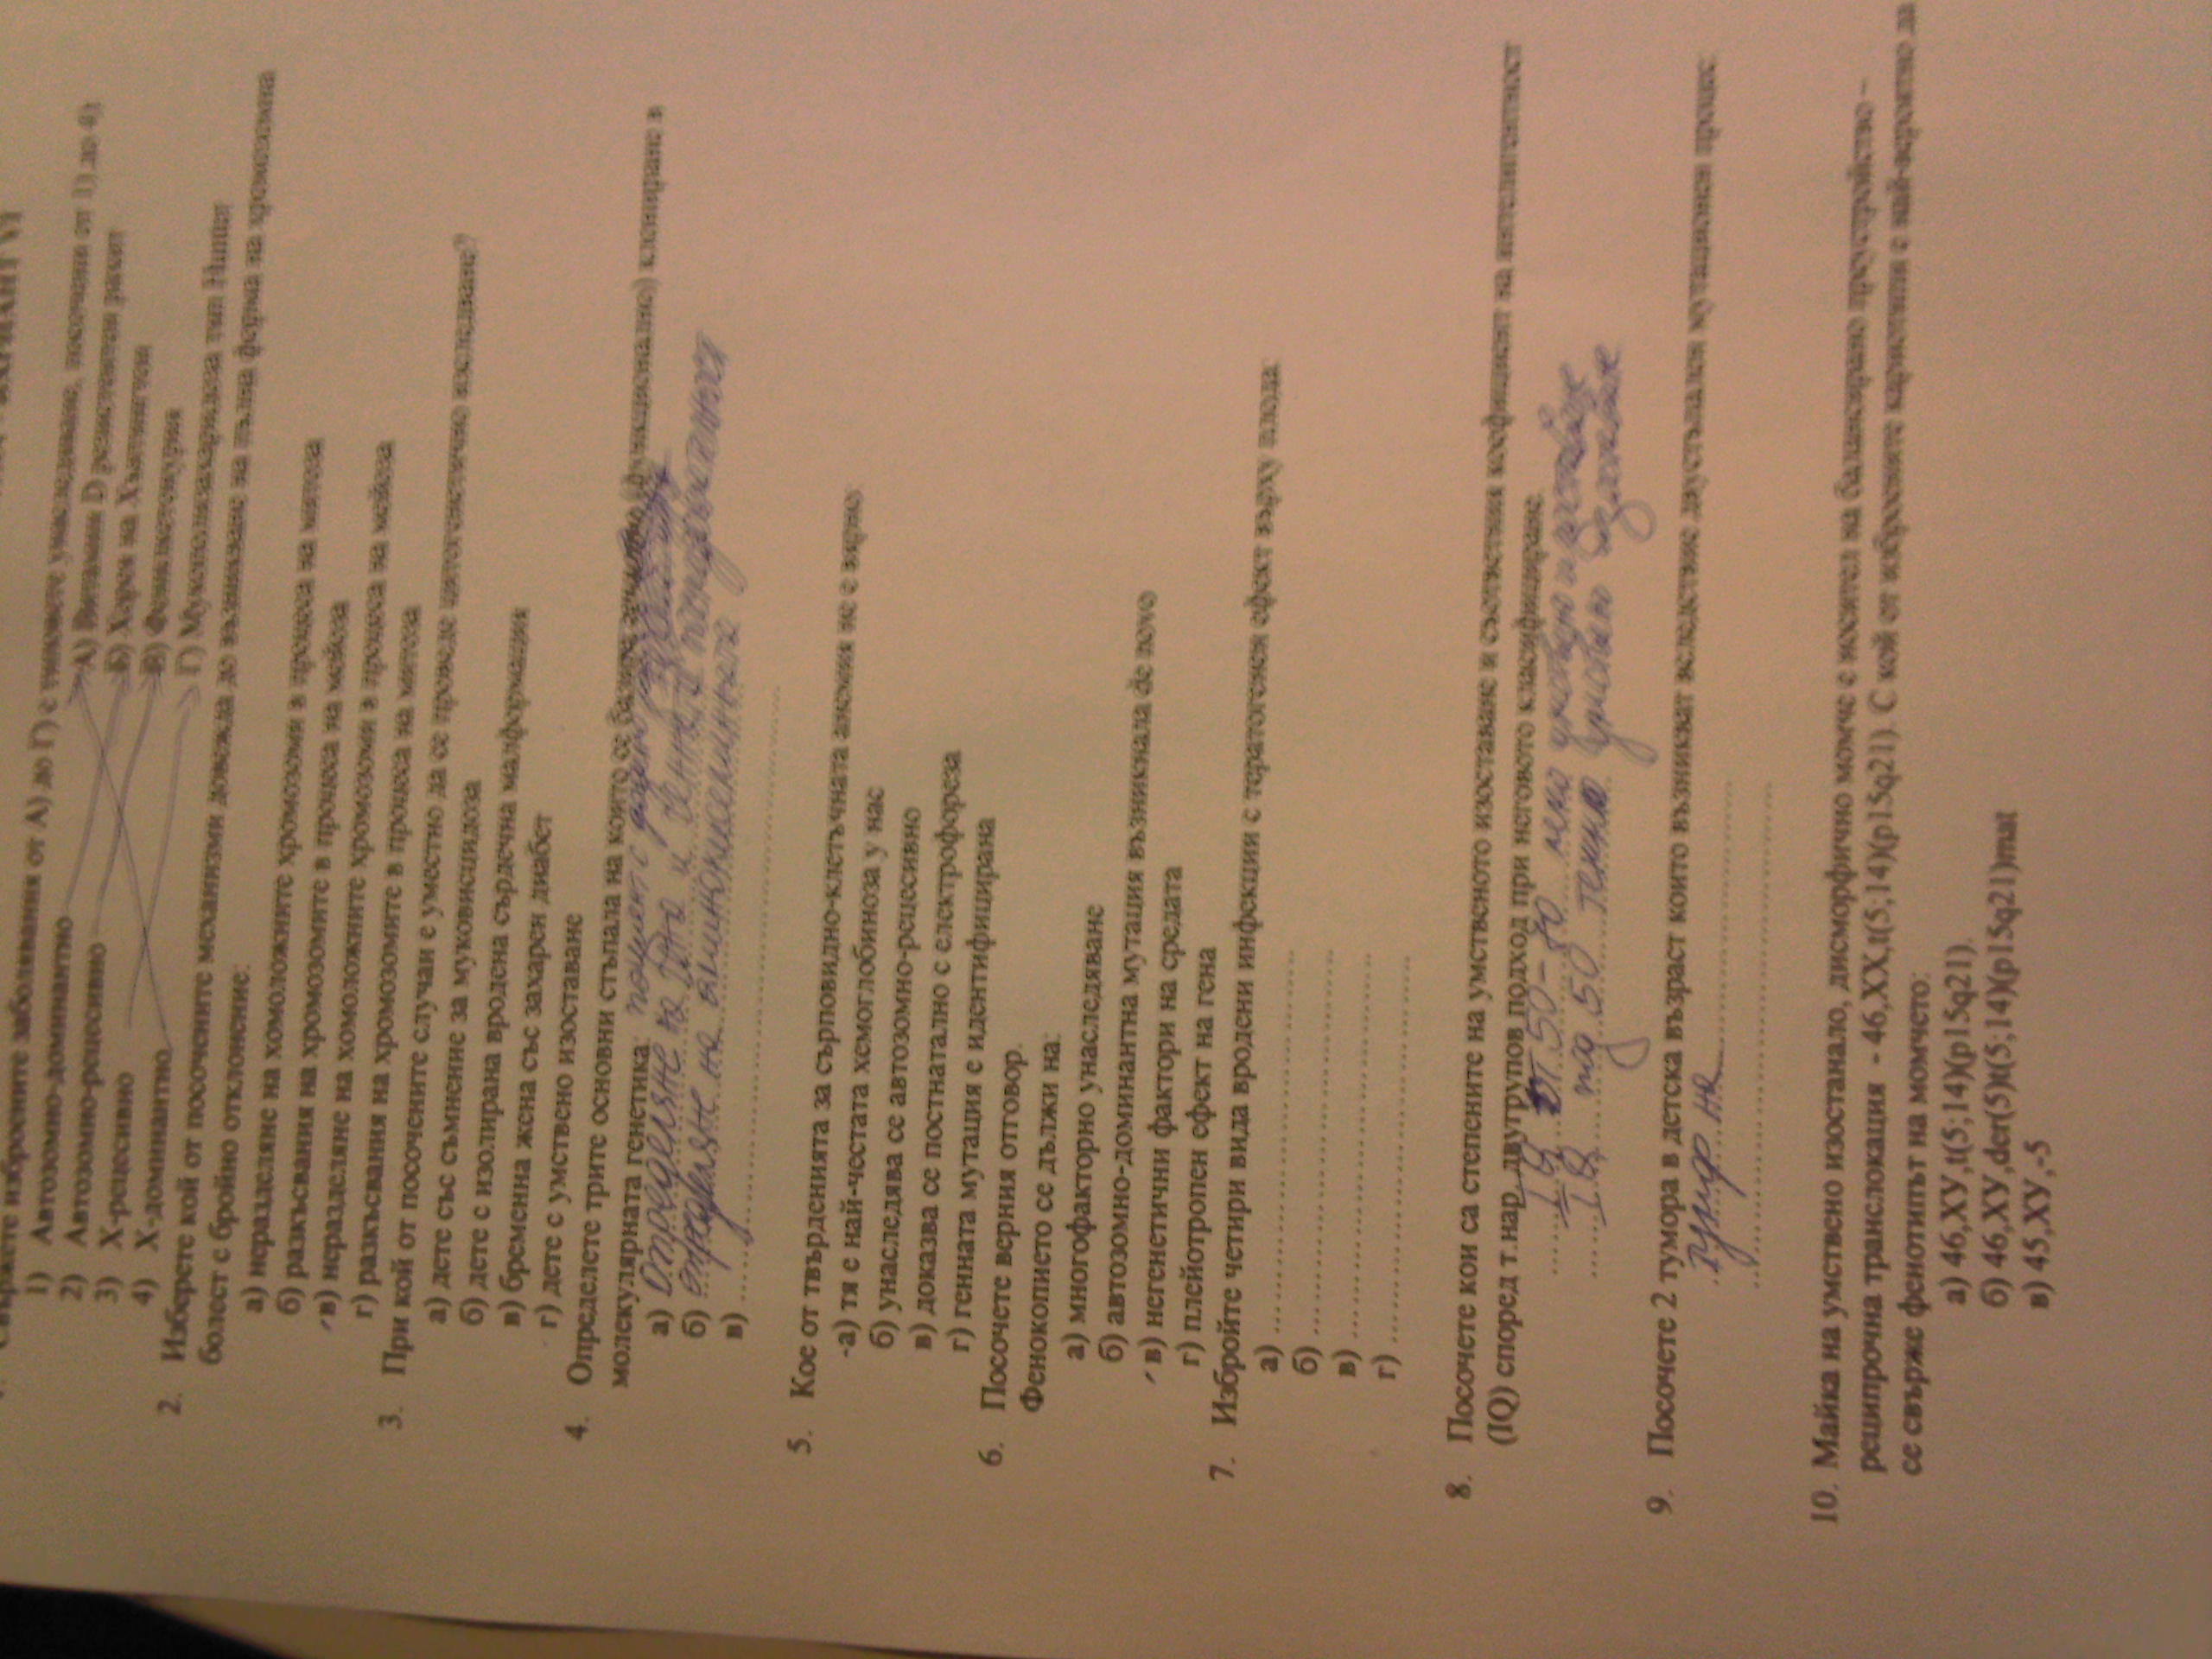 Свържете изброените заболявания от А) до Г) с типовете унаследяване, посочени от 1) до 4)
1) Автозомно-доминантно А) Витамин D резистентен рахит
2) Автозомно-рецесивно Б) Хорея на Хънтингтон
3) Х-рецесивно В) Фенилкетонурия
4) Х-доминантно Г) Мукополизахаридоза тип Hunter
2. Изберете кой от посочените механизми довежда до възникване на пълна форма на хромозомна
болест с бройно отклонение:
а) неразделяне на хомоложните хромозоми в процеса на митоза
б) разкъсвания на хромозомите в процеса на мейоза
в) неразделяне на хомоложните хромозоми в процеса на мейоза
г) разкъсвания на хромозомите в процеса на митоза
3. При кой от посочените случаи е уместно да се проведе цитогенетично изследване?
а) дете със съмнение за муковисцидоза
б) дете с изолирана вродена сърдечна малформация
в) бременна жена със захарен диабет
г) дете с умствено изоставане
4. Определете трите основни стъпала на които се базира (функционално) клониране в
молекулярната генетика: пациент с
а) определяне на
б) определяне на аминокиселинната
в)
5. Кое от твърденията за сърповидно-клетъчната анемия не е вярно:
а) тя е най-честата хемоглобиноза у нас
б) унаследява се автозомно-рецесивно
в) доказва се постнатално с електрофореза
г) генната мутация е идентифицирана
6. Посочете верния отговор.
Фенокопието се дължи на:
а) многофакторно унаследяване
б) автозомно-доминантна мутация възникнала de novo
в) негенетични фактори на средата
г) плейотропен ефект на гена
7. Избройте четири вида вродени инфекции с тератогенен ефект върху плода:
а)
б)
в)
г)
8. Посочете кои са степените на умственото изоставане и съответния коефициент на интелигентност
(IQ) според т.нар. двугрупов подход при неговото класифициране.
IQ от 50-70 леко умствено изоставане
IQ под 50 тежко умствено изоставане
9. Посочете 2 тумора в детска възраст които възникват вследствие двустъпален мутационен процес:
тумор на
10. Майка на умствено изостанало, дисморфично момче е носител на балансирано преустройство -
реципрочна транслокация - 46,XX,t(5;14)(p15q21). С кой от изброените кариотипи е най-вероятно да
се свърже фенотипът на момчето:
а) 46,XY,t(5;14)(p15q21).
б) 46,XY,der(5)t(5;14)(p15q21)mat
в) 45,XY,-5